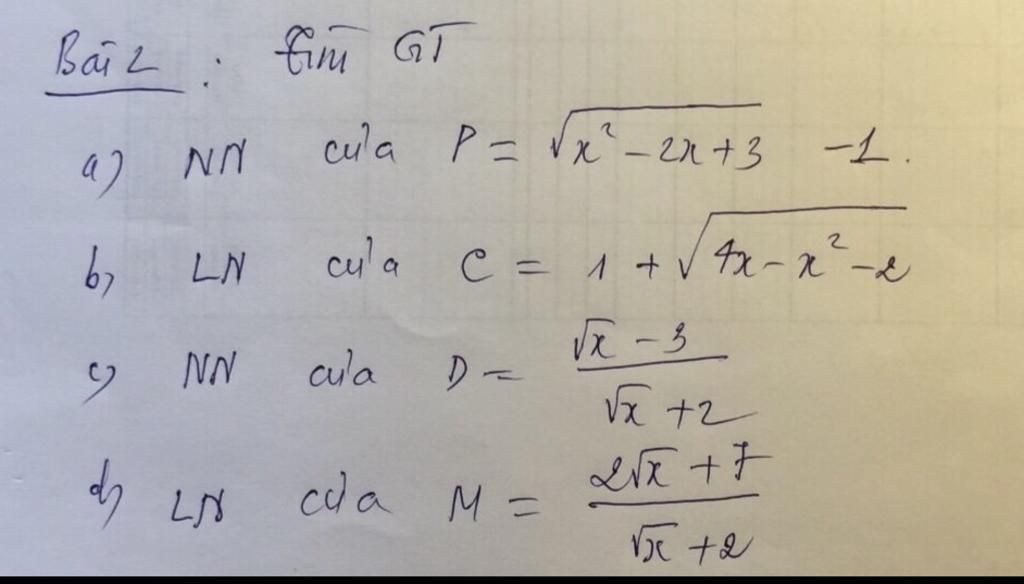 Bài 2 : Tìm GT
a) NN của P = √(x² - 2x + 3) - 1.
b) LN của C = 1 + √(4x - x² - 2)
c) NN của D = (√x - 3)/(√x + 2)
d) LN của M = (2√x + 7)/(√x + 2)